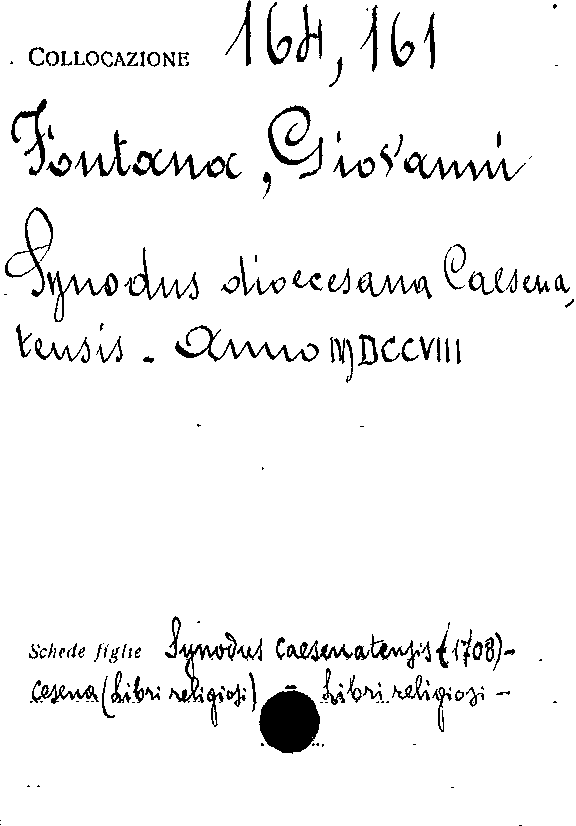 COLLOCAZIONE 164, 161
Fontana, Giovanni
Synodus dioecesana Caesena,
tensis - Anno MDCCVIII
Schede figlie Synodus Caesenatensis (1708) -
Cesena (Libri religiosi) - Libri religiosi -